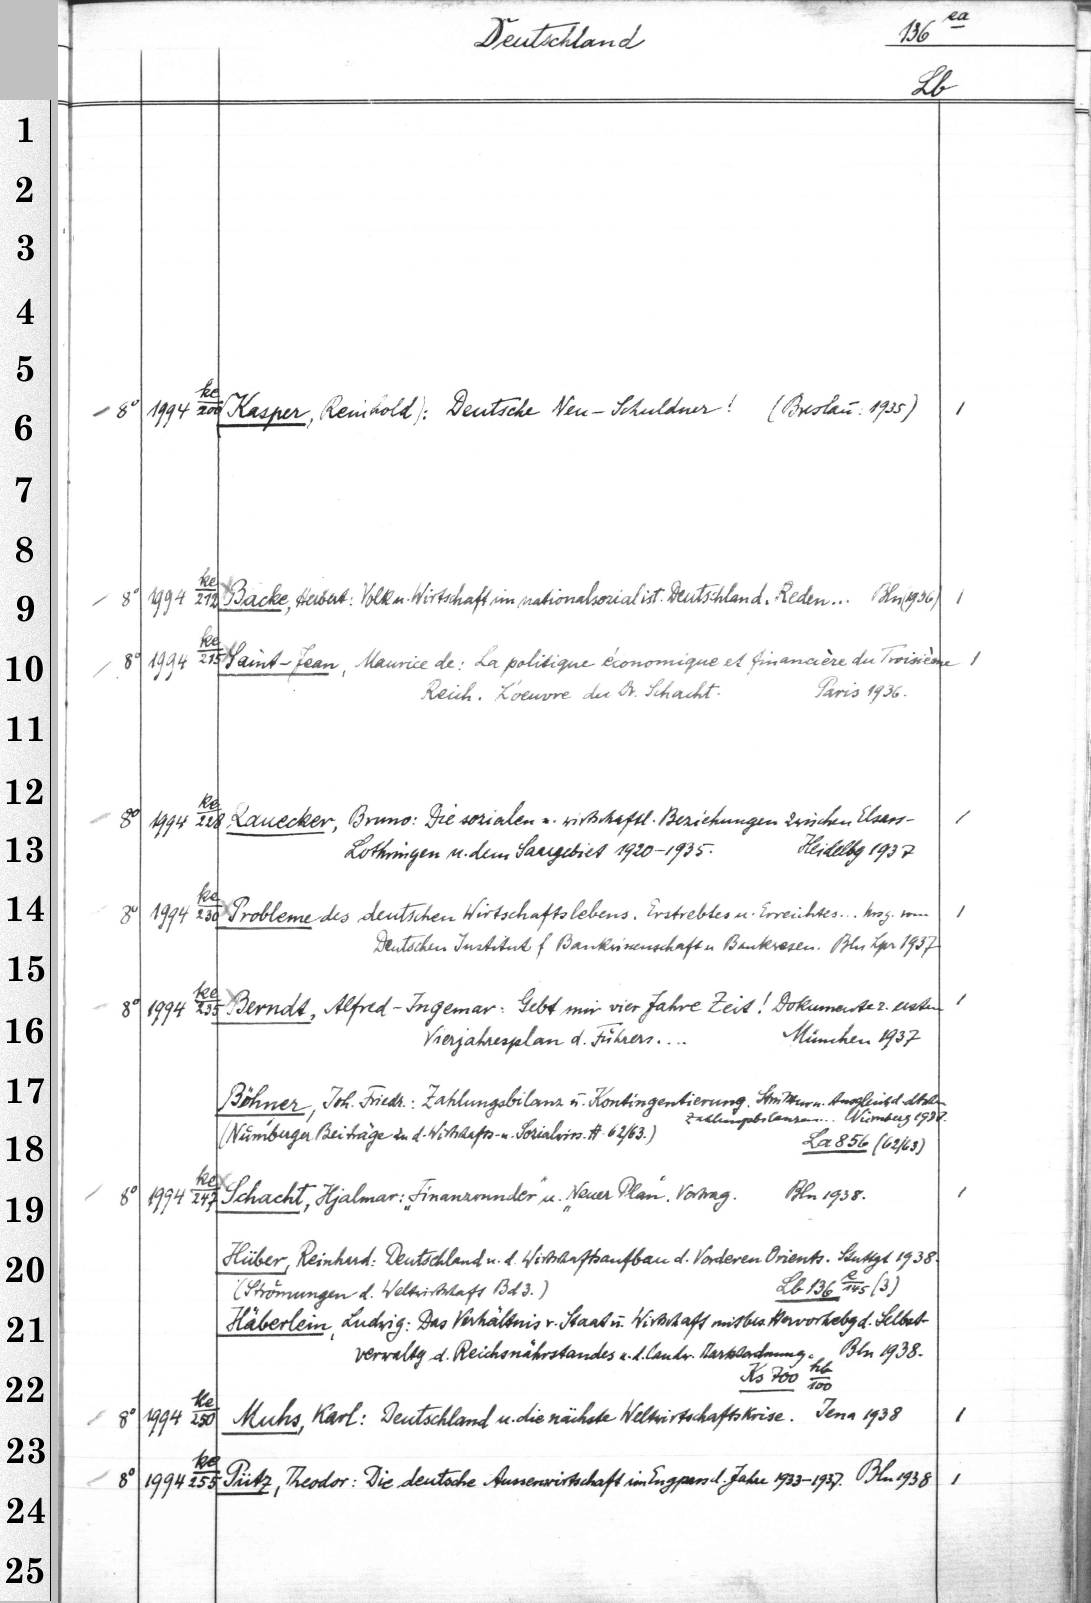 Deutschland 136 ea
Lb
1
2
3
4
5
8° 1994 ke/200 (Kasper, Reinhold): Deutsche Neu-Schuldner! (Breslau: 1935) 1
6
7
8
8° 1994 ke/212 Backe, Herbert: Volk u. Wirtschaft im nationalsozialist. Deutschland. Reden... Bln (1936) 1
9
8° 1994 ke/215 Saint-Jean, Maurice de: La politique économique et financière du Troisième 1
10
Reich. L'oeuvre du Dr. Schacht. Paris 1936.
11
12
8° 1994 ke/228 Lauecker, Bruno: Die sozialen u. wirtschaftl. Beziehungen zwischen Elsass- 1
13
Lothringen u. dem Saargebiet 1920-1935. Heidelbg 1937
14
8° 1994 ke/230 Probleme des deutschen Wirtschaftslebens. Erstrebtes u. Erreichtes... Hrsg. vom 1
Deutschen Institut f Bankwissenschaft u Bankwesen. Bln Lpz 1937
15
8° 1994 ke/235 Berndt, Alfred-Ingemar: Gebt mir vier Jahre Zeit! Dokumente z. ersten 1
16
Vierjahresplan d. Führers.... München 1937
17
Böhner, Joh. Friedr.: Zahlungsbilanz u. Kontingentierung. Struktur u. Ausgleich d. dtschen
Zahlungsbilanzen... Nürnberg 1937.
18
(Nürnberger Beiträge zu d. Wirtschafts- u. Sozialwiss. H. 62/63.) La 856 (62/63)
19
8° 1994 ke/247 Schacht, Hjalmar: „Finanzwunder" u. „Neuer Plan". Vortrag. Bln 1938. 1
20
Hüber, Reinhard: Deutschland u. d. Wirtschaftsaufbau d. Vorderen Orients. Stuttgt 1938.
(Strömungen d. Weltwirtschaft Bd 3.) Lb 136 e/145 (3)
21
Häberlein, Ludwig: Das Verhältnis v. Staat u. Wirtschaft mit bes. Hervorhebg d. Selbst-
verwaltg d. Reichsnährstandes u. d. landw. Marktordnung. Bln 1938.
22
Ks 700 hb/100
8° 1994 ke/250 Muhs, Karl: Deutschland u. die nächste Weltwirtschaftskrise. Jena 1938 1
23
8° 1994 ke/255 Pütz, Theodor: Die deutsche Aussenwirtschaft im Engpass d. Jahre 1933-1937. Bln 1938 1
24
25